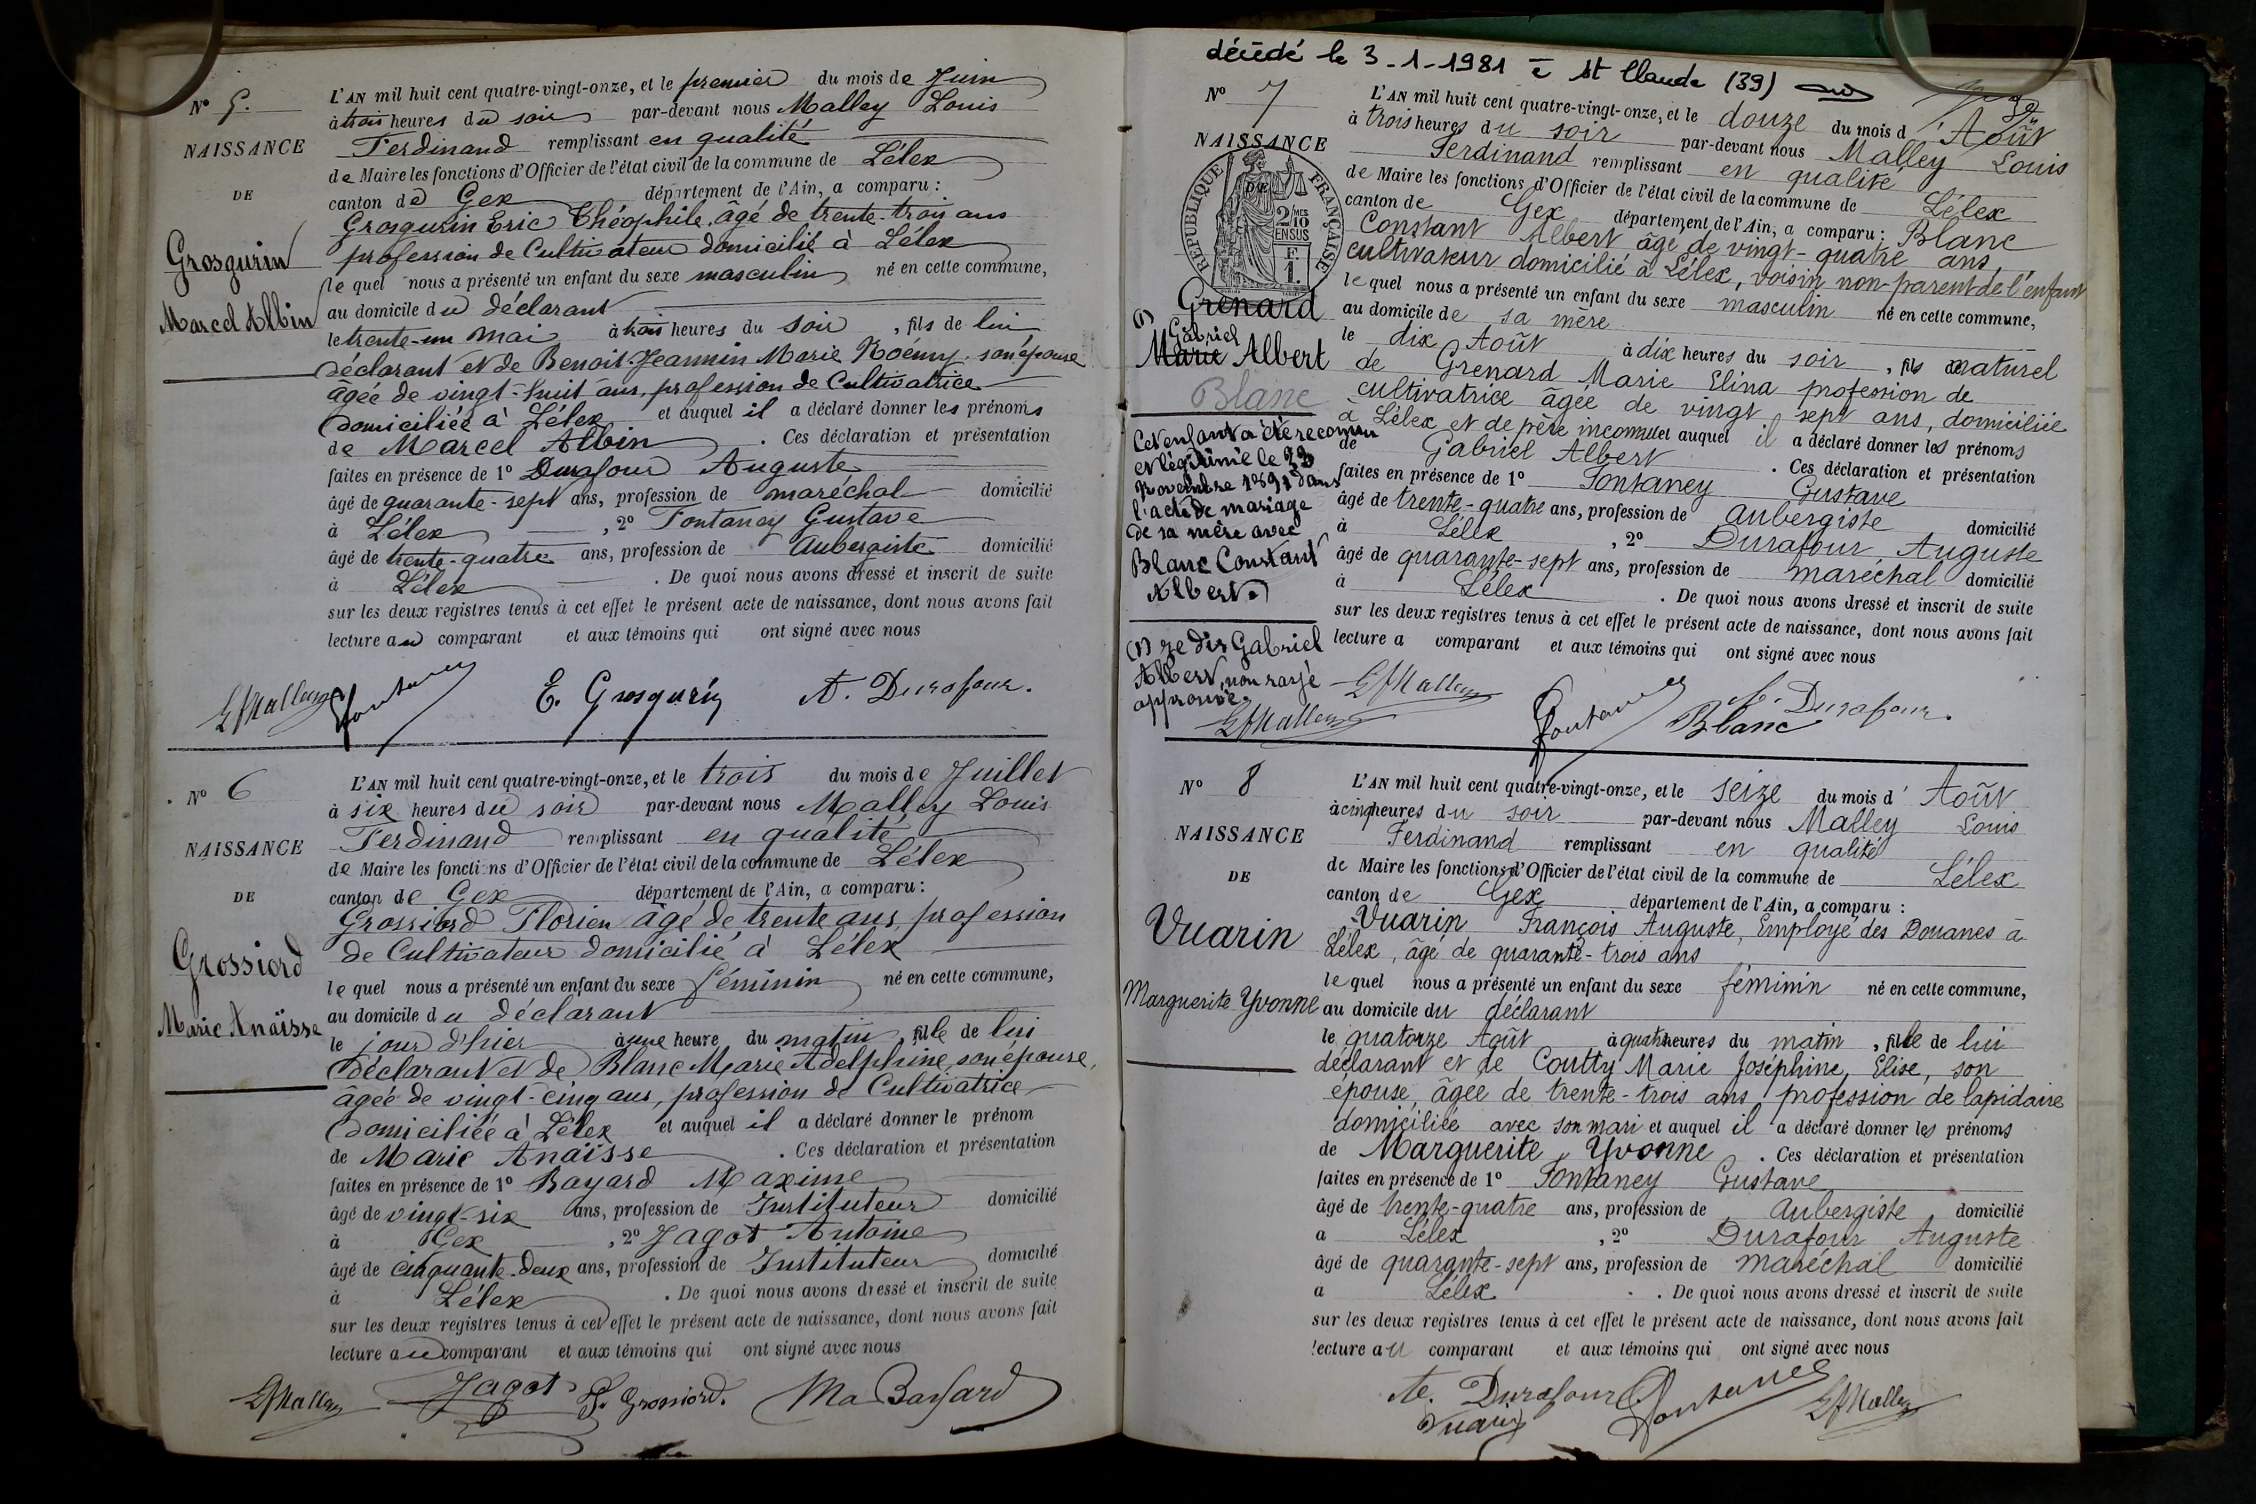 N° 5.
NAISSANCE
DE
Grosgurin
Marcel Albin
L'AN mil huit cent quatre-vingt-onze, et le premier du mois de Juin
à trois heures du soir par-devant nous Malley Louis
Ferdinand remplissant en qualité
de Maire les fonctions d'Officier de l'état civil de la commune de Lélex
canton de Gex département de l'Ain, a comparu :
Grosgurin Eric Théophile, âgé de trente-trois ans
profession de Cultivateur domicilié à Lélex
le quel nous a présenté un enfant du sexe masculin né en cette commune,
au domicile du déclarant
le trente-un mai à trois heures du soir, fils de lui
déclarant et de Benoit-Jeannin Marie Noémy, son épouse
âgée de vingt-huit ans, profession de Cultivatrice
domiciliée à Lélex et auquel il a déclaré donner les prénoms
de Marcel Albin. Ces déclaration et présentation
faites en présence de 1° Durafour Auguste
âgé de quarante-sept ans, profession de maréchal domicilié
à Lélex, 2° Fontaney Gustave
âgé de trente-quatre ans, profession de Aubergiste domicilié
à Lélex. De quoi nous avons dressé et inscrit de suite
sur les deux registres tenus à cet effet le présent acte de naissance, dont nous avons fait
lecture au comparant et aux témoins qui ont signé avec nous
LfMalley Fontaney E. Grosgurin A. Durafour.
N° 6
NAISSANCE
DE
Grossiord
Marie Anaïsse
L'AN mil huit cent quatre-vingt-onze, et le trois du mois de Juillet
à six heures du soir par-devant nous Malley Louis
Ferdinand remplissant en qualité
de Maire les fonctions d'Officier de l'état civil de la commune de Lélex
canton de Gex département de l'Ain, a comparu :
Grossiord Florien âgé de trente ans, profession
de Cultivateur domicilié à Lélex
le quel nous a présenté un enfant du sexe féminin né en cette commune,
au domicile du déclarant
le jour d'hier à une heure du matin, fille de lui
déclarant et de Blanc Marie Adelphine, son épouse,
âgée de vingt-cinq ans, profession de Cultivatrice
domiciliée à Lélex et auquel il a déclaré donner le prénom
de Marie Anaïsse. Ces déclaration et présentation
faites en présence de 1° Bayard Maxime
âgé de vingt-six ans, profession de Instituteur domicilié
à Gex, 2° Jagot Antoine
âgé de cinquante-deux ans, profession de Instituteur domicilié
à Lélex. De quoi nous avons dressé et inscrit de suite
sur les deux registres tenus à cet effet le présent acte de naissance, dont nous avons fait
lecture au comparant et aux témoins qui ont signé avec nous
LfMalley Jagot F. Grossiord. Ma Bayard
décédé le 3-1-1981 à St Claude (39)
N° 7
NAISSANCE
DE
RÉPUBLIQUE FRANÇAISE
2/10 MES
EN SUS
F.
1.
(1) Grenard
Gabriel
Marie Albert
Blanc
Cet enfant a été reconnu
et légitimé le 23
Novembre 1891 dans
l'acte de mariage
de sa mère avec
Blanc Constant
Albert.
(1) je dis Gabriel
Albert, non rayé
approuvé.
LfMalley
L'AN mil huit cent quatre-vingt-onze, et le douze du mois d'Août
à trois heures du soir par-devant nous Malley Louis
Ferdinand remplissant en qualité
de Maire les fonctions d'Officier de l'état civil de la commune de Lélex
canton de Gex département de l'Ain, a comparu : Blanc
Constant Albert âgé de vingt-quatre ans
cultivateur domicilié à Lélex, voisin non-parent de l'enfant
le quel nous a présenté un enfant du sexe masculin né en cette commune,
au domicile de sa mère
le dix Août à dix heures du soir, fils naturel
de Grenard Marie Elina profession de
cultivatrice âgée de vingt sept ans, domiciliée
à Lélex et de père inconnu et auquel il a déclaré donner les prénoms
de Gabriel Albert. Ces déclaration et présentation
faites en présence de 1° Fontaney Gustave
âgé de trente-quatre ans, profession de aubergiste domicilié
à Lélex, 2° Durafour Auguste
âgé de quarante-sept ans, profession de maréchal domicilié
à Lélex. De quoi nous avons dressé et inscrit de suite
sur les deux registres tenus à cet effet le présent acte de naissance, dont nous avons fait
lecture a comparant et aux témoins qui ont signé avec nous
LfMalley Fontaney Blanc A. Durafour.
N° 8
NAISSANCE
DE
Vuarin
Marguerite Yvonne
L'AN mil huit cent quatre-vingt-onze, et le seize du mois d'Août
à cinq heures du soir par-devant nous Malley Louis
Ferdinand remplissant en qualité
de Maire les fonctions d'Officier de l'état civil de la commune de Lélex
canton de Gex département de l'Ain, a comparu :
Vuarin François Auguste, Employé des Douanes à
Lélex, âgé de quarante-trois ans
le quel nous a présenté un enfant du sexe féminin né en cette commune,
au domicile du déclarant
le quatorze Août à quatre heures du matin, fille de lui
déclarant et de Coutty Marie Joséphine, Elise, son
épouse, âgée de trente-trois ans profession de lapidaire
domiciliée avec son mari et auquel il a déclaré donner les prénoms
de Marguerite Yvonne. Ces déclaration et présentation
faites en présence de 1° Fontaney Gustave
âgé de trente-quatre ans, profession de Aubergiste domicilié
à Lélex, 2° Durafour Auguste
âgé de quarante-sept ans, profession de maréchal domicilié
à Lélex. De quoi nous avons dressé et inscrit de suite
sur les deux registres tenus à cet effet le présent acte de naissance, dont nous avons fait
lecture au comparant et aux témoins qui ont signé avec nous
A. Durafour Fontaney LfMalley
Vuarin